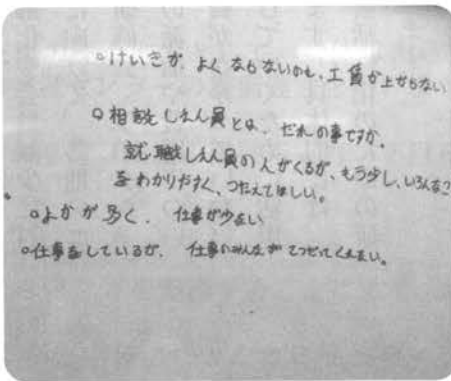 ○けいきが、よくならないのも、工賃が上がらない
○相談しえん員とは、だれの事ですか。
就職しえん員の人がくるが、もう少し、いろんなこ
をわかりやすく、つたえてほしい。
○よかが多く、仕事が少ない
○仕事をしているが、仕事のみんなが てつだってくれない。